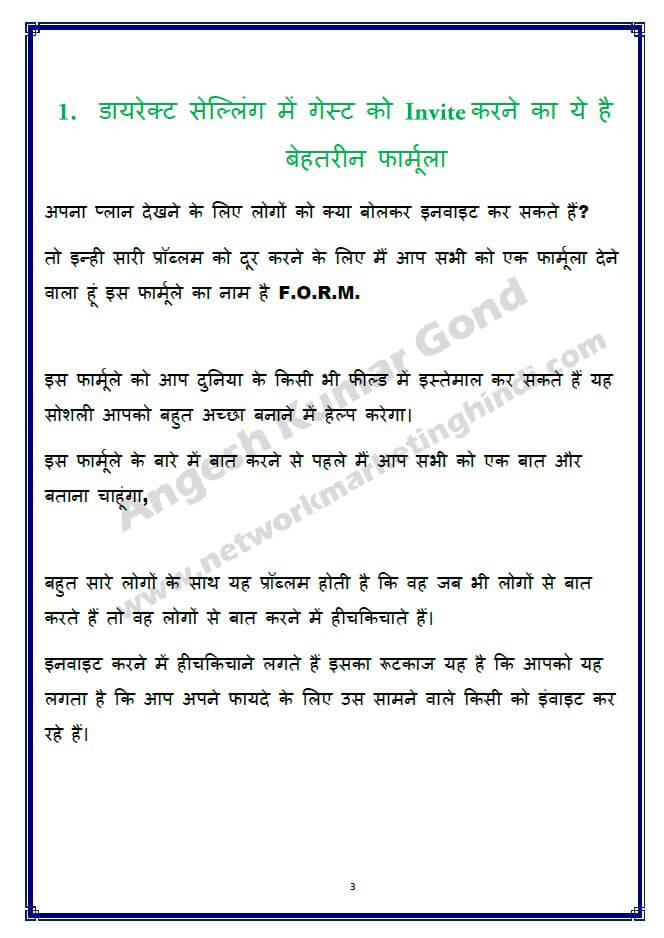 1. डायरेक्ट सेल्लिंग में गेस्ट को Invite करने का ये है
बेहतरीन फार्मूला
अपना प्लान देखने के लिए लोगों को क्या बोलकर इनवाइट कर सकते हैं?
तो इन्ही सारी प्रॉब्लम को दूर करने के लिए मैं आप सभी को एक फार्मूला देने
वाला हूं इस फार्मूले का नाम है F.O.R.M.
इस फार्मूले को आप दुनिया के किसी भी फील्ड में इस्तेमाल कर सकते हैं यह
सोशली आपको बहुत अच्छा बनाने में हेल्प करेगा।
इस फार्मूले के बारे में बात करने से पहले मैं आप सभी को एक बात और
बताना चाहूंगा,
बहुत सारे लोगों के साथ यह प्रॉब्लम होती है कि वह जब भी लोगों से बात
करते हैं तो वह लोगों से बात करने में हीचकिचाते हैं।
इनवाइट करने में हीचकिचाने लगते हैं इसका रूटकाज यह है कि आपको यह
लगता है कि आप अपने फायदे के लिए उस सामने वाले किसी को इंवाइट कर
रहे हैं।
Angesh Kumar Gond
www.networkmarketinghindi.com
3